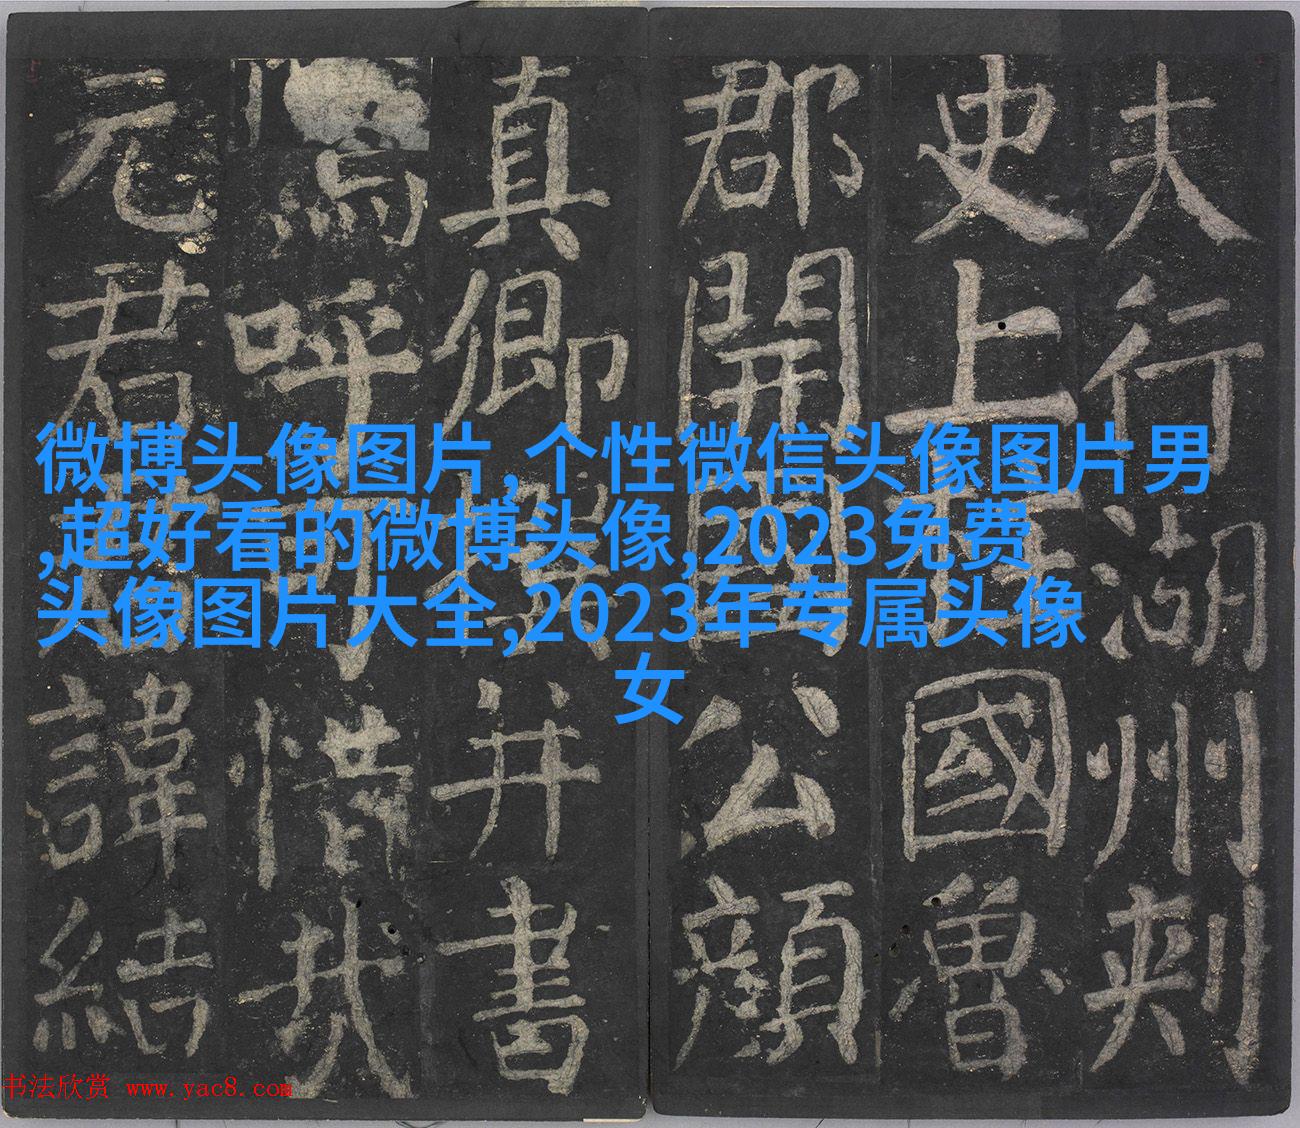 夫行湖州刺
史上柱國魯
郡開國公顏
真卿撰并書
嗚呼可惜哉
元君君諱結
微博头像图片,个性微信头像图片男
,超好看的微博头像,2023免费
头像图片大全,2023年专属头像
女
书法欣赏 www.yac8.com